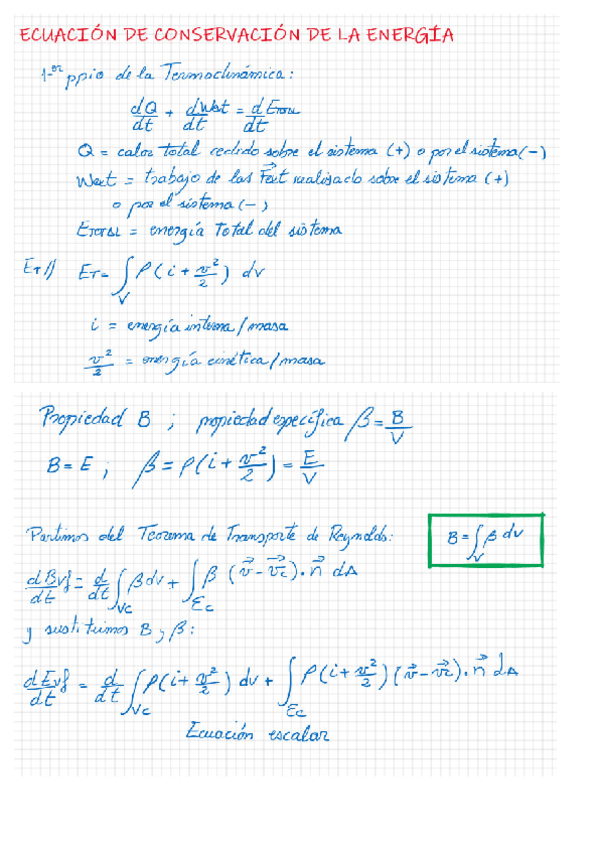 ECUACIÓN DE CONSERVACIÓN DE LA ENERGÍA
1-er ppio de la Termodinámica:
dQ/dt + dWext/dt = dETOTAL/dt
Q = calor total cedido sobre el sistema (+) o por el sistema (-)
Wext = trabajo de las F⃗ext realizado sobre el sistema (+)
o por el sistema (-)
ETOTAL = energía total del sistema
ET// ET = ∫V ρ(i + v²/2) dv
i = energía interna/masa
v²/2 = energía cinética/masa
Propiedad B ; propiedad específica β = B/V
B = E ; β = ρ(i + v²/2) = E/V
Partimos del Teorema de Transporte de Reynolds:
B = ∫V β dv
dBvf/dt = d/dt ∫Vc β dv + ∫Σc β (v⃗ - v⃗c)·n⃗ dA
y sustituimos B y β:
dEvf/dt = d/dt ∫Vc ρ(i + v²/2) dv + ∫Σc ρ(i + v²/2)(v⃗ - v⃗c)·n⃗ dA
Ecuación escalar